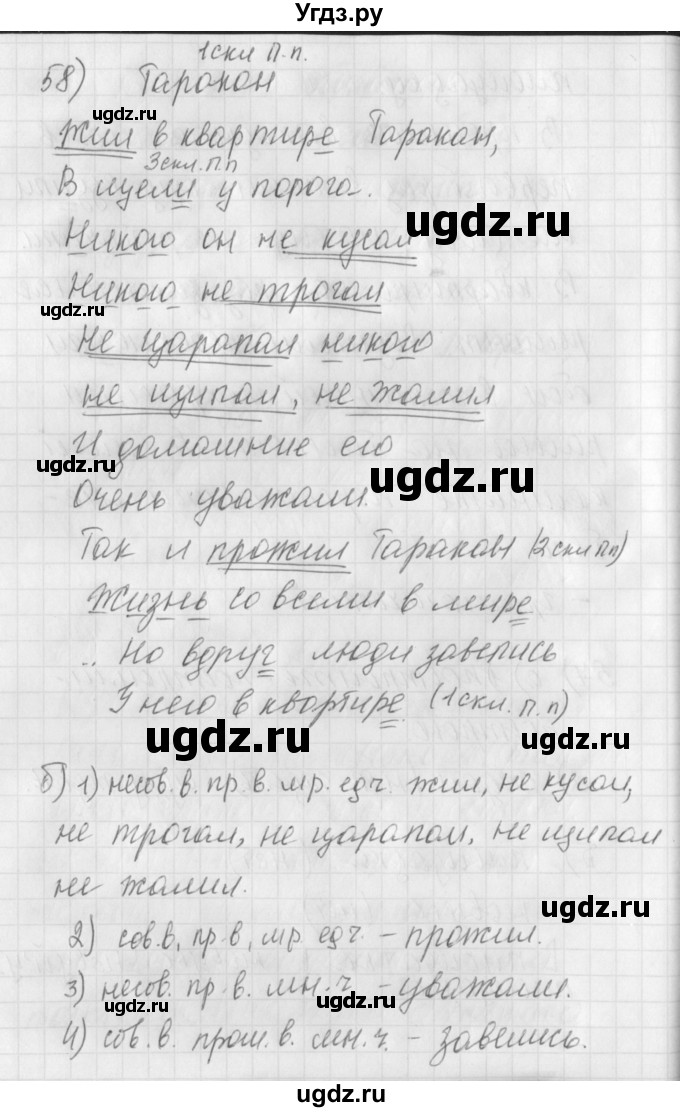 Угдз.ру
1скл П.п.
58) Таракан
ugdz.ru
Жил в квартире Таракан,
3скл.П.п
В щели у порога.
ugdz.ru
Никого он не кусал
Никого не трогал
ugdz.ru
Не царапал никого
не щипал, не жалил
И домашние его
ugdz.ru
ugdz.ru
Очень уважали.
Так и прожил Таракан (2скл Пп)
Жизнь со всеми в мире
.. Но вдруг люди завелись
У него в квартире. (1скл. П.п)
ugdz.ru
ugdz.ru
б) 1) несов.в. пр.в. мр. едч. жил, не кусал,
не трогал, не царапал, не щипал
не жалил.
ugdz.ru
2) сов.в, пр.в, мр. едч. – прожил.
3) несов. пр.в. мн.ч. – уважали.
ugdz.ru
4) сов.в. прош.в. мн.ч. – завелись.
ugdz.ru